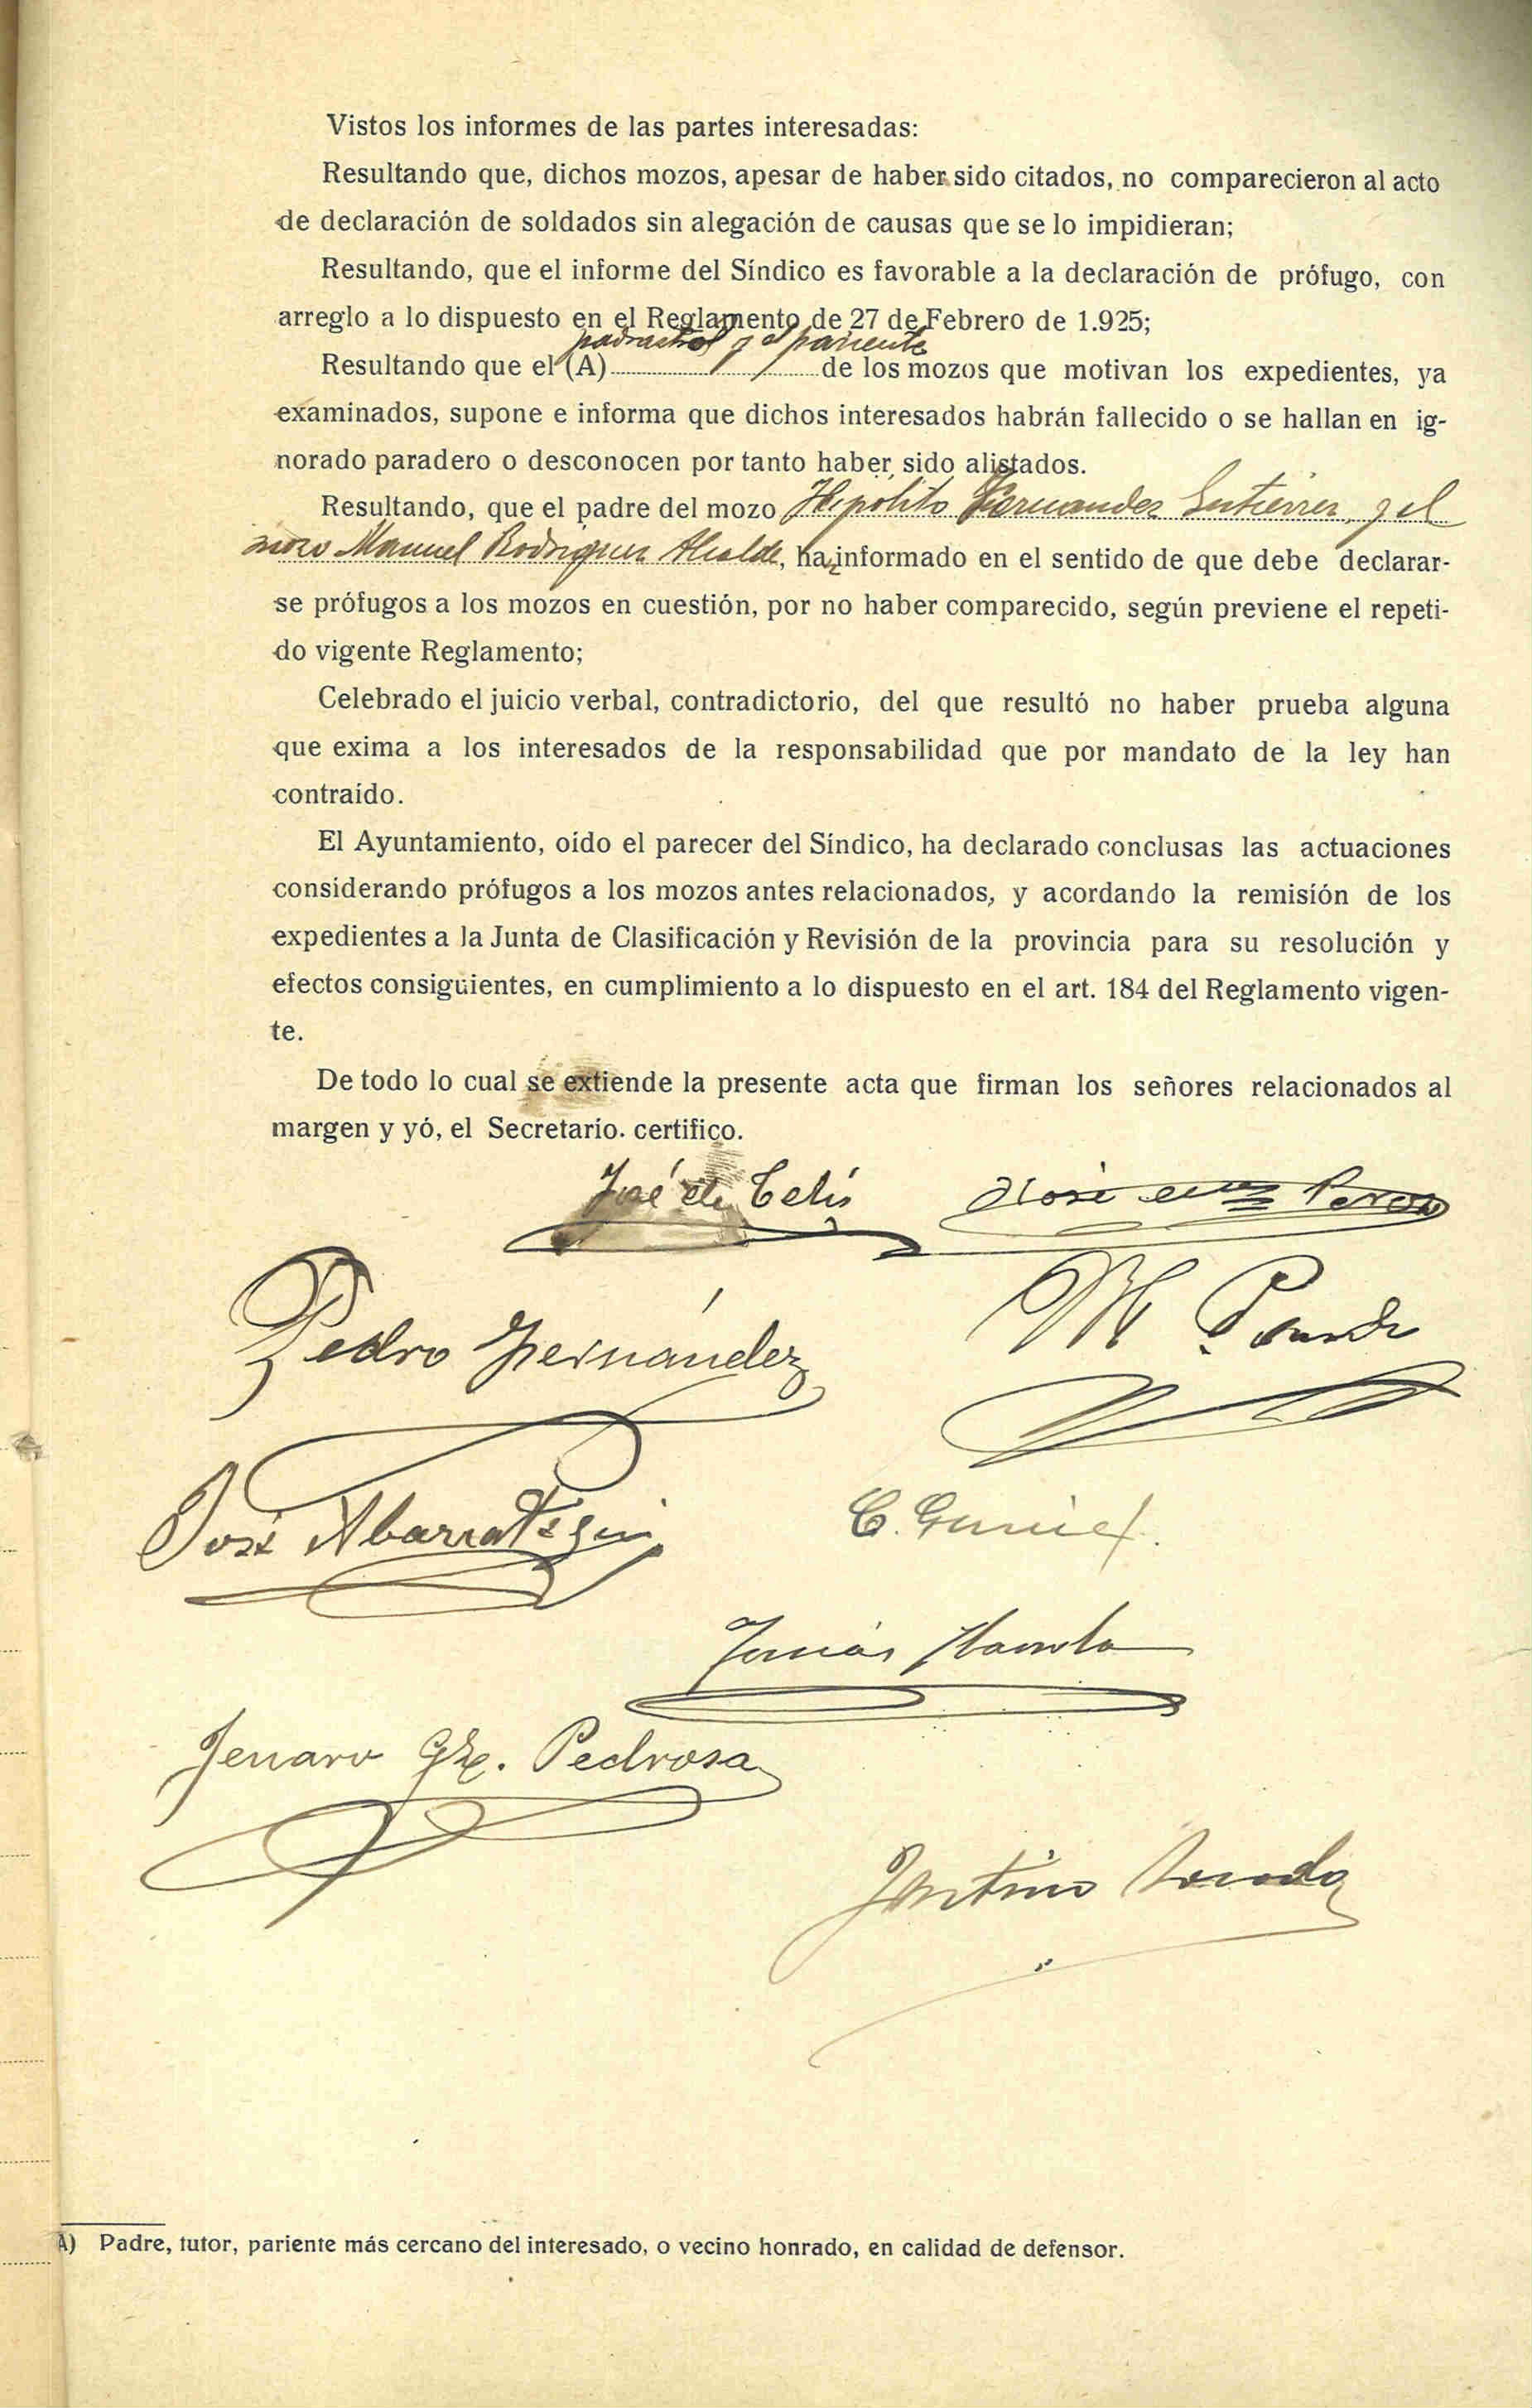 Vistos los informes de las partes interesadas:
Resultando que, dichos mozos, apesar de haber sido citados, no comparecieron al acto
de declaración de soldados sin alegación de causas que se lo impidieran;
Resultando, que el informe del Síndico es favorable a la declaración de prófugo, con
arreglo a lo dispuesto en el Reglamento de 27 de Febrero de 1.925;
padrastro y el pariente
Resultando que el (A) de los mozos que motivan los expedientes, ya
examinados, supone e informa que dichos interesados habrán fallecido o se hallan en ig-
norado paradero o desconocen por tanto haber sido alistados.
Resultando, que el padre del mozo Hipólito Fernandez Gutierrez, y el
mozo Manuel Rodriguez Alcalde, han informado en el sentido de que debe declarar-
se prófugos a los mozos en cuestión, por no haber comparecido, según previene el repeti-
do vigente Reglamento;
Celebrado el juicio verbal, contradictorio, del que resultó no haber prueba alguna
que exima a los interesados de la responsabilidad que por mandato de la ley han
contraído.
El Ayuntamiento, oído el parecer del Síndico, ha declarado conclusas las actuaciones
considerando prófugos a los mozos antes relacionados, y acordando la remisión de los
expedientes a la Junta de Clasificación y Revisión de la provincia para su resolución y
efectos consiguientes, en cumplimiento a lo dispuesto en el art. 184 del Reglamento vigen-
te.
De todo lo cual se extiende la presente acta que firman los señores relacionados al
margen y yó, el Secretario. certifico.
José de Celis José Perez
Pedro Hernández M.
José Abarrategui C.
Tomás
Jenaro Gze. Pedrosa
A) Padre, tutor, pariente más cercano del interesado, o vecino honrado, en calidad de defensor.